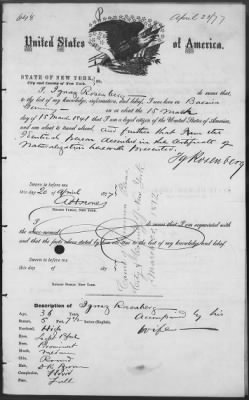 648
April 20/77
United States of America.
STATE OF NEW YORK,
City and County of New York,
I, Ignaz Rosenberg do swear that,
to the best of my knowledge, information, and belief, I was born in Bavaria
Germany on or about the 15 March
day of 15 March 1841 that I am a legal citizen of the United States of America,
and am about to travel abroad and further that I am the
identical person described in the Certificate of
Naturalization herewith presented.
Ig Rosenberg
Sworn to before me
this day 20 April 1877
NOTARY PUBLIC, NEW YORK.
I am acquainted with
the above named
and that the facts stated by to the best of my knowledge and belief
Sworn to before me
this day of
NOTARY PUBLIC, NEW YORK.
Description of Ignaz Rosenberg
Age, 36 Years Accompanied by his
Stature, 5 Feet 7 ½ inches (English) wife
Forehead, High
Eyes,
Nose, Prominent
Mouth, Medium
Chin, Round
Hair, Dk Brown
Complexion,
Face, Full